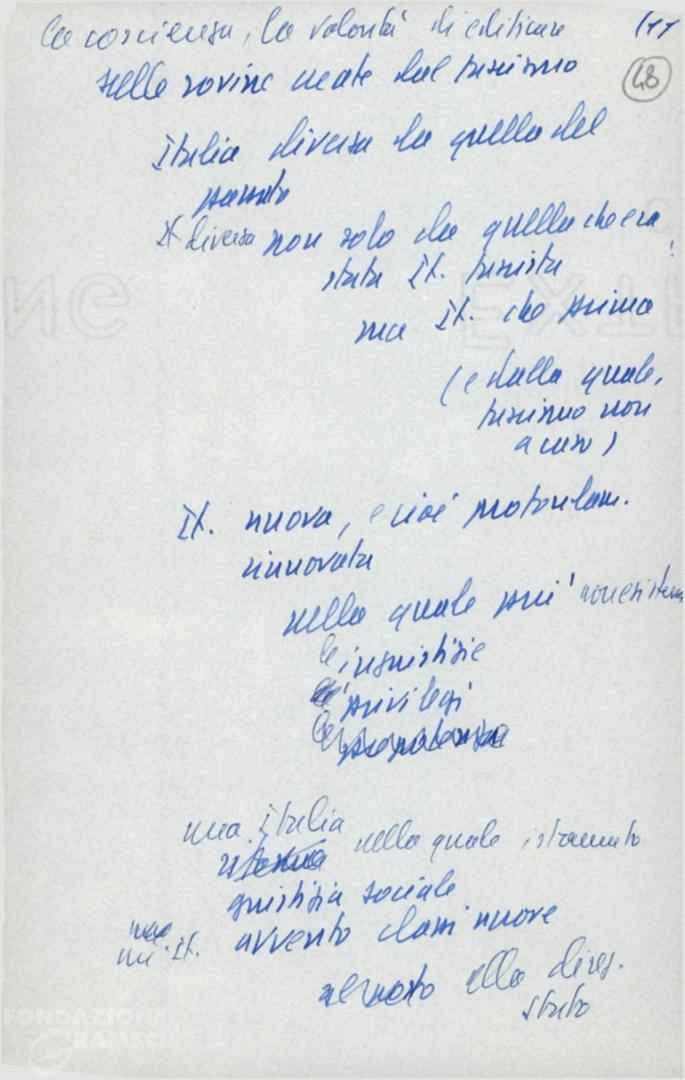 la coscienza, la volontà di edificare
48
sulle rovine create dal fascismo
Italia diversa da quella del
passato
It diversa non solo da quella che era
stata It. fascista
ma It. che prima
(e dalla quale,
fascismo non
a caso)
It. nuova, e cioè profondam.
rinnovata
nella quale più non esistano
le ingiustizie
privilegi
una Italia
nella quale
giustizia sociale
It. avvento classi nuove
alla direz.
stato
FONDAZIONE
GRAMSCI